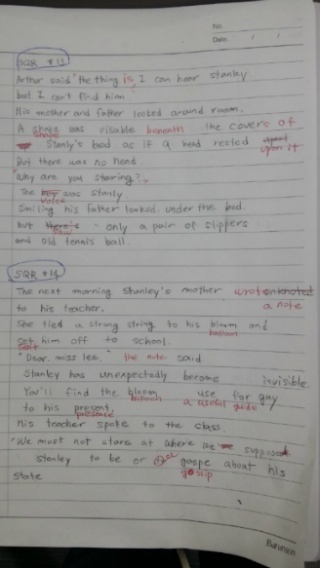 No.
Date. / /
SQR #13
Arthur said "the thing is, I can hear stanley
but I can't find him"
His mother and father looked around room.
A shape was visable beneath the covers of
shape
Stanly's bed as if a head rested upon it
But there was no head.
"Why are you staring?"
The boy was Stanly
Voice
Smiling his father looked under the bed.
but there's - only a pair of slippers
and old tennis ball.
SQR #14
The next morning Stanley's mother wrote
a note
to his teacher.
She tied a strong string to his bloom and
balloon
set him off to school.
sent
"Dear. miss lee." the note said
Stanley has unexpectedly become invisible
You'll find the bloom use for guy
balloon a useful guide
to his present
presence
His teacher spoke to the class.
"We must not stare at where we suppose
stanley to be or gospe about his
gossip
state